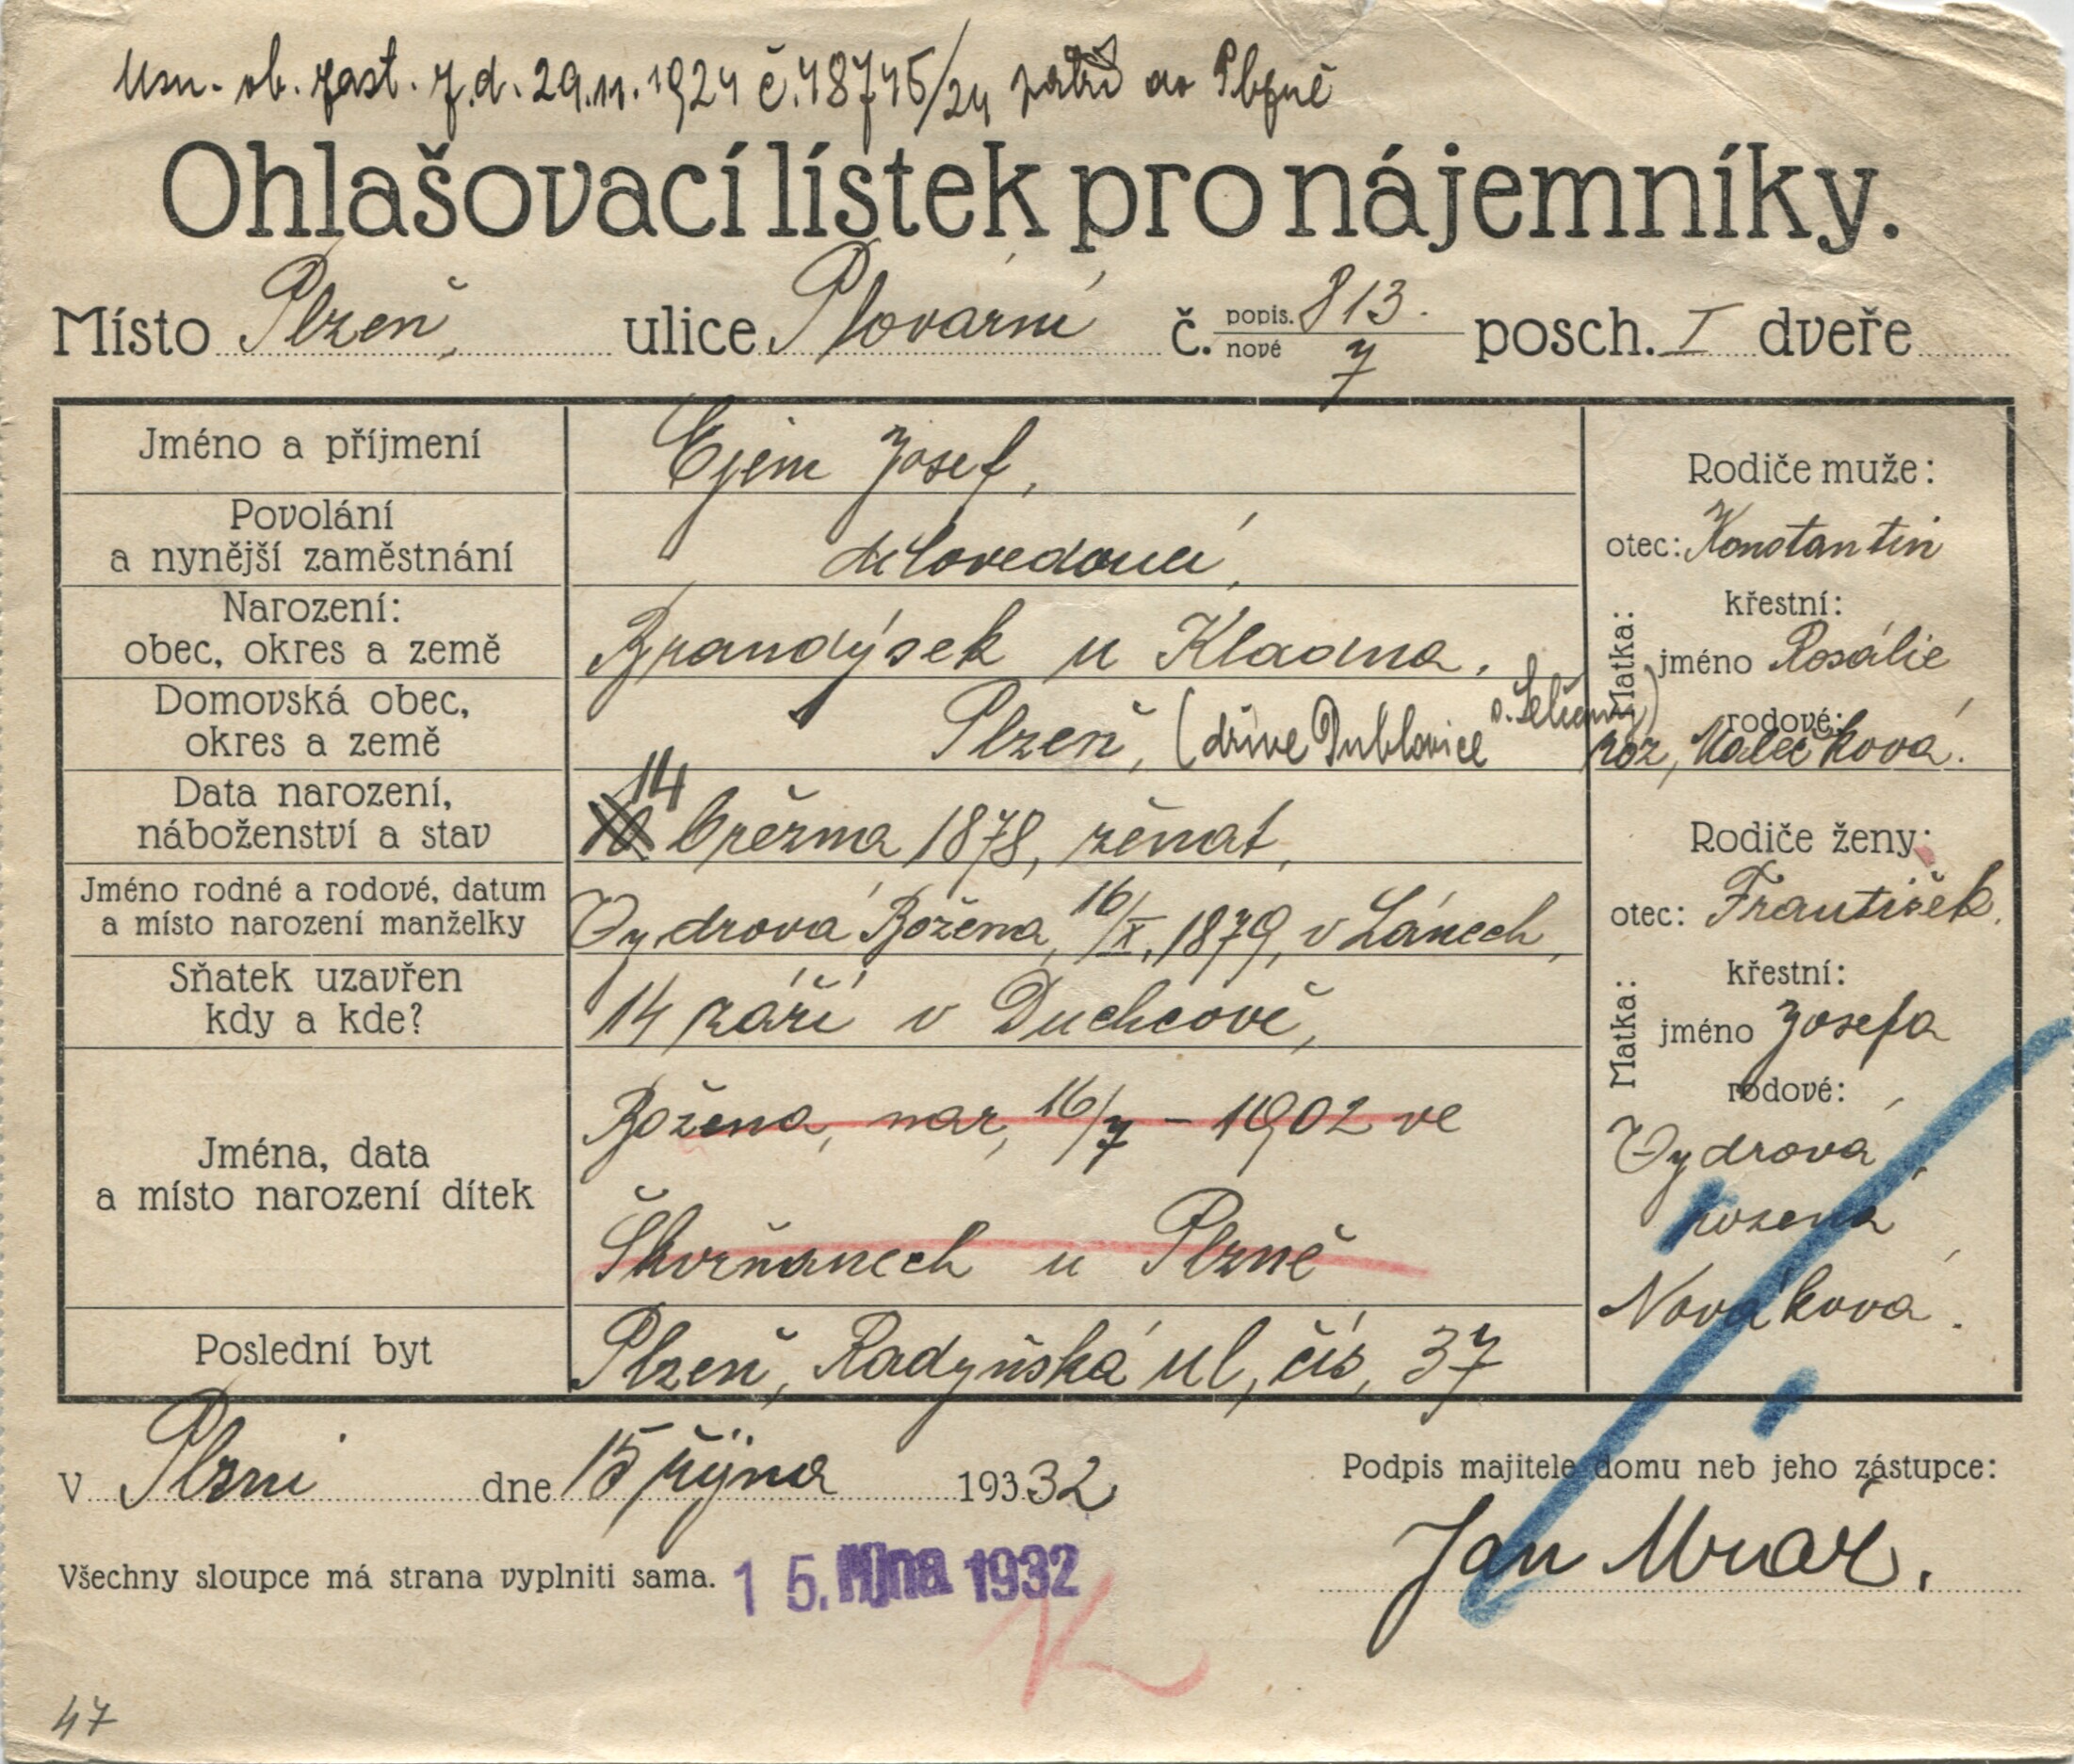 Usn. ob. zast. z. d. 29.11.1924 č. 48745/24 patří do Plzně
Ohlašovací lístek pro nájemníky.
Místo Plzeň, ulice Plovární č. popis. 813. nové 7 posch. I dveře
Jméno a příjmení Ejem Josef,
Povolání a nynější zaměstnání dělovedoucí,
Narození: obec, okres a země Brandýsek u Kladna,
Domovská obec, okres a země Plzeň, (dříve Dublovice o. Selčany)
Data narození, náboženství a stav 14 března 1878, ženat,
Jméno rodné a rodové, datum a místo narození manželky Vydrová Božena, 16/X. 1879, v Lánech,
Sňatek uzavřen kdy a kde? 14 září v Duchcově,
Jména, data a místo narození dítek Božena, nar, 16/7 – 1902 ve
Škvrňanech u Plzně
Poslední byt Plzeň, Radyňská ul, čís, 37
Rodiče muže:
otec: Konstantin
Matka: křestní:
jméno Rosálie
rodové:
roz, Malečková.
Rodiče ženy:
otec: František,
Matka: křestní:
jméno Josefa
rodové:
Vydrová,
rozená
Nováková.
V Plzni dne 15 října 193 32
Podpis majitele domu neb jeho zástupce:
Jan Mráz.
Všechny sloupce má strana vyplniti sama. 15. října 1932
47